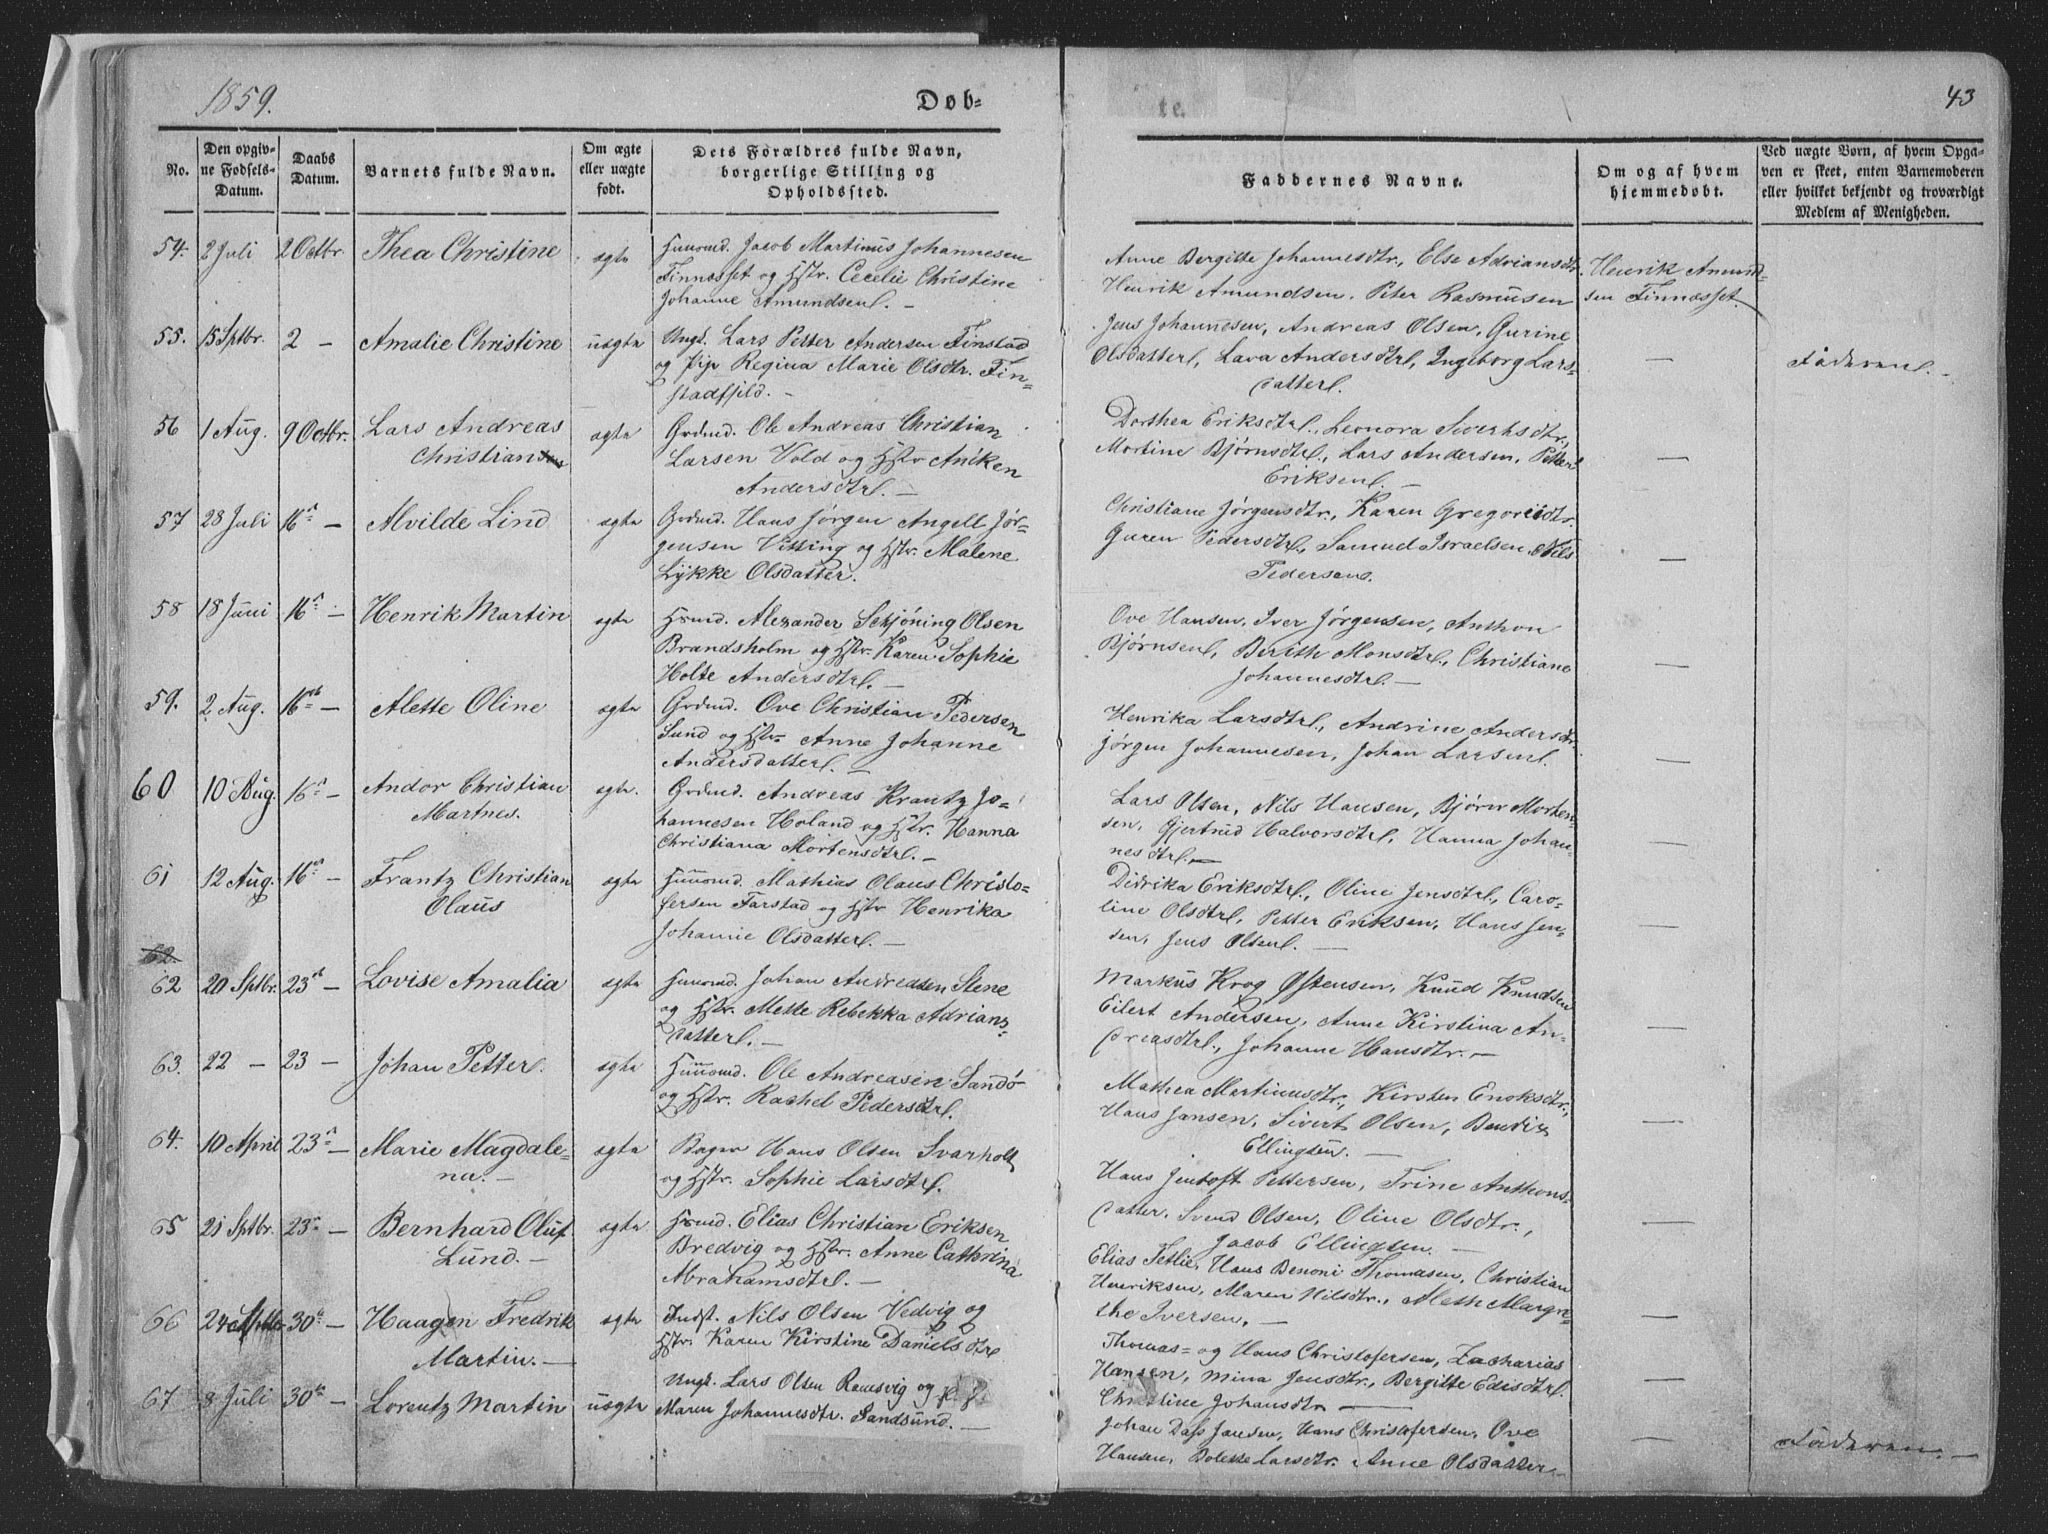 1859.
Døb-
te.
43
No.
Den opgiv-
ne Fødsels-
Datum.
Daabs
Datum.
Barnets fulde Navn.
Om ægte
eller uægte
født.
Dets Forældres fulde Navn,
borgerlige Stilling og
Opholdssted.
Faddernes Navne.
Om og af hvem
hjemmedøbt.
Ved uægte Børn, af hvem Opga-
ven er skeet, enten Barnemoderen
eller hvilket bekjendt og troværdigt
Medlem af Menigheden.
54. 2 Juli 2 Octbr. Thea Christine ægte
Huusmd. Jacob Martinus Johannesen
Finnæsset og Hstr. Cecelie Christine
Johanne Amundsen. —
Anne Bergitte Johannesdtr., Else Adriansdtr.
Henrik Amundsen. Peter Rasmusen
Henrik Amund-
sen Finnæsset.
55. 15 Sptbr. 2 — Amalie Christine uægte
Ungk. Lars Petter Andersen Finstad
og Pige Regina Marie Olsdtr. Fin-
stadfjeld. —
Jens Johannesen, Andreas Olsen, Gurine
Olsdatter, Lava Andersdtr, Ingeborg Lars-
datter.
—
Faderen. —
56 1 Aug. 9 Octbr. Lars Andreas
Christian
ægte
Grdmd. Ole Andreas Christian
Larsen Vold og Hstr Aniken
Andersdtr. —
Dorthea Eriksdtr., Leonora Sivertsdtr.,
Mortine Bjørnsdtr., Lars Andersen, Petter
Eriksen. —
—
57 28 Juli 16 — Alvilde Lind ægte
Grdmd. Hans Jørgen Angell Jør-
gensen Vitting og Hstr. Malene
Lykke Olsdatter.
Christiane Jørgensdtr., Karen Gregoriidtr.
Guren Pedersdtr., Samuel Israelsen, Nils
Pedersen.
—
58 18 Juni 16 — Henrik Martin ægte
Hsmd. Alexander Schjøning Olsen
Brandsholm og Hstr. Karen Sophie
Holte Andersdtr. —
Ove Hansen, Iver Jørgensen, Anthon
Bjørnsen, Berith Monsdtr., Christiane
Johannesdtr. —
—
59. 2 Aug. 16 — Alette Oline ægte
Grdmd. Ove Christian Pedersen
Sund og Hstr. Anne Johanne
Andersdatter. —
Henrika Larsdtr., Andrine Andersdtr.
Jørgen Johannesen, Johan Larsen.
—
60 10 Aug. 16 — Andor Christian
Martnes.
ægte.
Grdmd. Andreas Krantz Jo-
hannesen Holand og Hstr. Hanna
Christiana Mortensdtr. —
Lars Olsen, Nils Hansen, Bjørn Morten-
sen, Gjertrud Halvorsdtr., Hanna Johan-
nesdtr. —
—
61 12 Aug. 16 — Frantz Christian
Olaus
ægte
Huusmd. Mathias Olaus Christo-
fersen Farstad og Hstr Henrika
Johanne Olsdatter. —
Didrika Eriksdtr., Oline Jensdtr., Caro-
line Olsdtr, Petter Eriksen, Hans Jen-
sen, Jens Olsen. —
—
62.
62 20 Sptbr. 23 — Lovise Amalia ægte
Huusmd. Johan Andreasen Stene
og Hstr. Mette Rebekka Adrians-
datter. —
Markus Krog Østensen, Knud Knudsen
Eilert Andersen, Anne Kirstina An-
dreasdtr., Johanne Hansdtr. —
—
63. 22 — 23 — Johan Petter. ægte
Huusmd. Ole Andreasen Sandø
og Hstr. Rachel Pedersdtr.
Mathea Martinusdtr., Kirsten Enoksdtr.,
Hans Jansen, Sivert Olsen, Bendix
Ellingsen. —
—
64. 10 April 23 — Marie Magdale-
na. —
ægte
Bager Hans Olsen Svarholt
og Hstr. Sophie Larsdtr.
Hans Jentoft Pettersen, Trine Anthons-
datter. Svend Olsen, Oline Olsdtr.,
Jacob Ellingsen. —
—
65 21 Sptbr. 23 — Bernhard Oluf
Lund. —
ægte
Hsmd. Elias Christian Eriksen
Bredvig og Hstr. Anne Cathrina
Abrahamsdtr. —
Elias Tetlie, Hans Benoni Thomasen, Christian
Henriksen, Maren Nilsdtr., Meth Margre-
the Iversen. —
—
66 24 Sptbr 30 — Haagen Fredrik
Martin. —
ægte
Indst. Nils Olsen Vedvig og
Hstr. Karen Kirstine Danielsdtr
Thomas- og Hans Christofersen, Zacharias
Hansen, Mina Jensdtr., Bergitte Edisdtr.
Christine Johansdtr. —
—
67 8 Juli 30 — Lorentz Martin uægte
Ungk. Lars Olsen Ramsvig og
Maren Johannesdtr. Sandsund. —
Johan Dass Jansen, Hans Christofersen, Ove
Hansen, Bolette Larsdtr. Anne Olsdatter —
—
Faderen. —